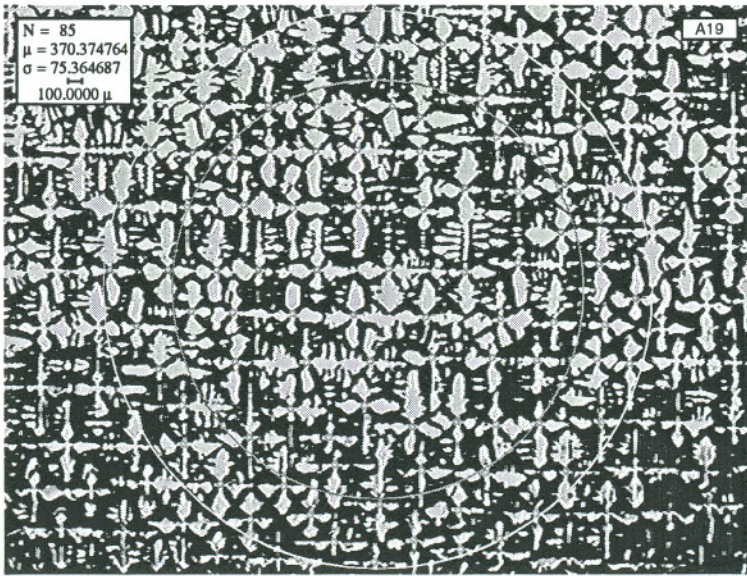 N = 85
μ = 370.374764
σ = 75.364687
100.0000 μ
A19